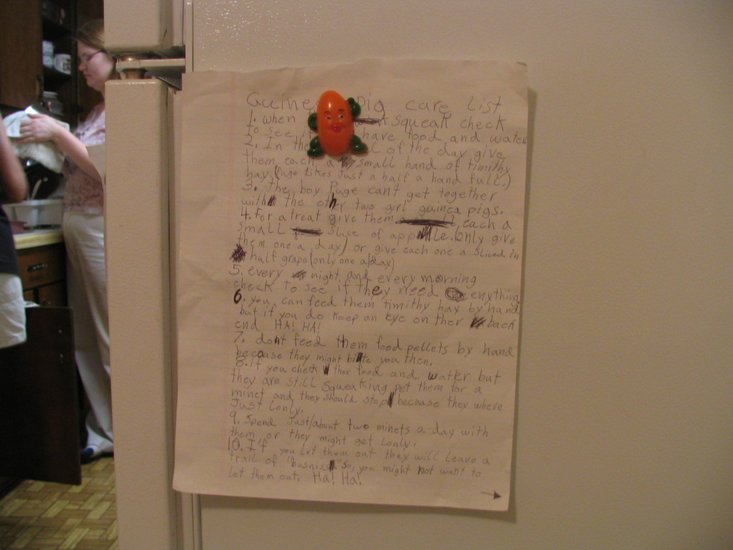 Guine pig care list
1. when squeak check
to see have food and water
2. In the of the day give
them each a small hand of timithy
hay (Page likes just a half a hand full.)
3. the boy Page can't get together
with the other two girl guinea pigs.
4. For a treat give them each a
small slice of apple. (only give
them one a day) or give each one a sliced in
half grape (only one a day)
5. every night and every morning
check to see if they need enything
6. you can feed them timithy hay by hand
but if you do keep an eye on ther back
end HA! HA!
7. don't feed them food pellets by hand
because they might bite you then.
8. If you check ther food and water but
they are still squeaking pet them for a
minet and they should stop because they where
Just lonly.
9. Spend Just/about two minets a day with
them or they might get lonly.
10. If you let them out they will leave a
trail of "busnis" so you might not want to
let them out. Ha! Ha!